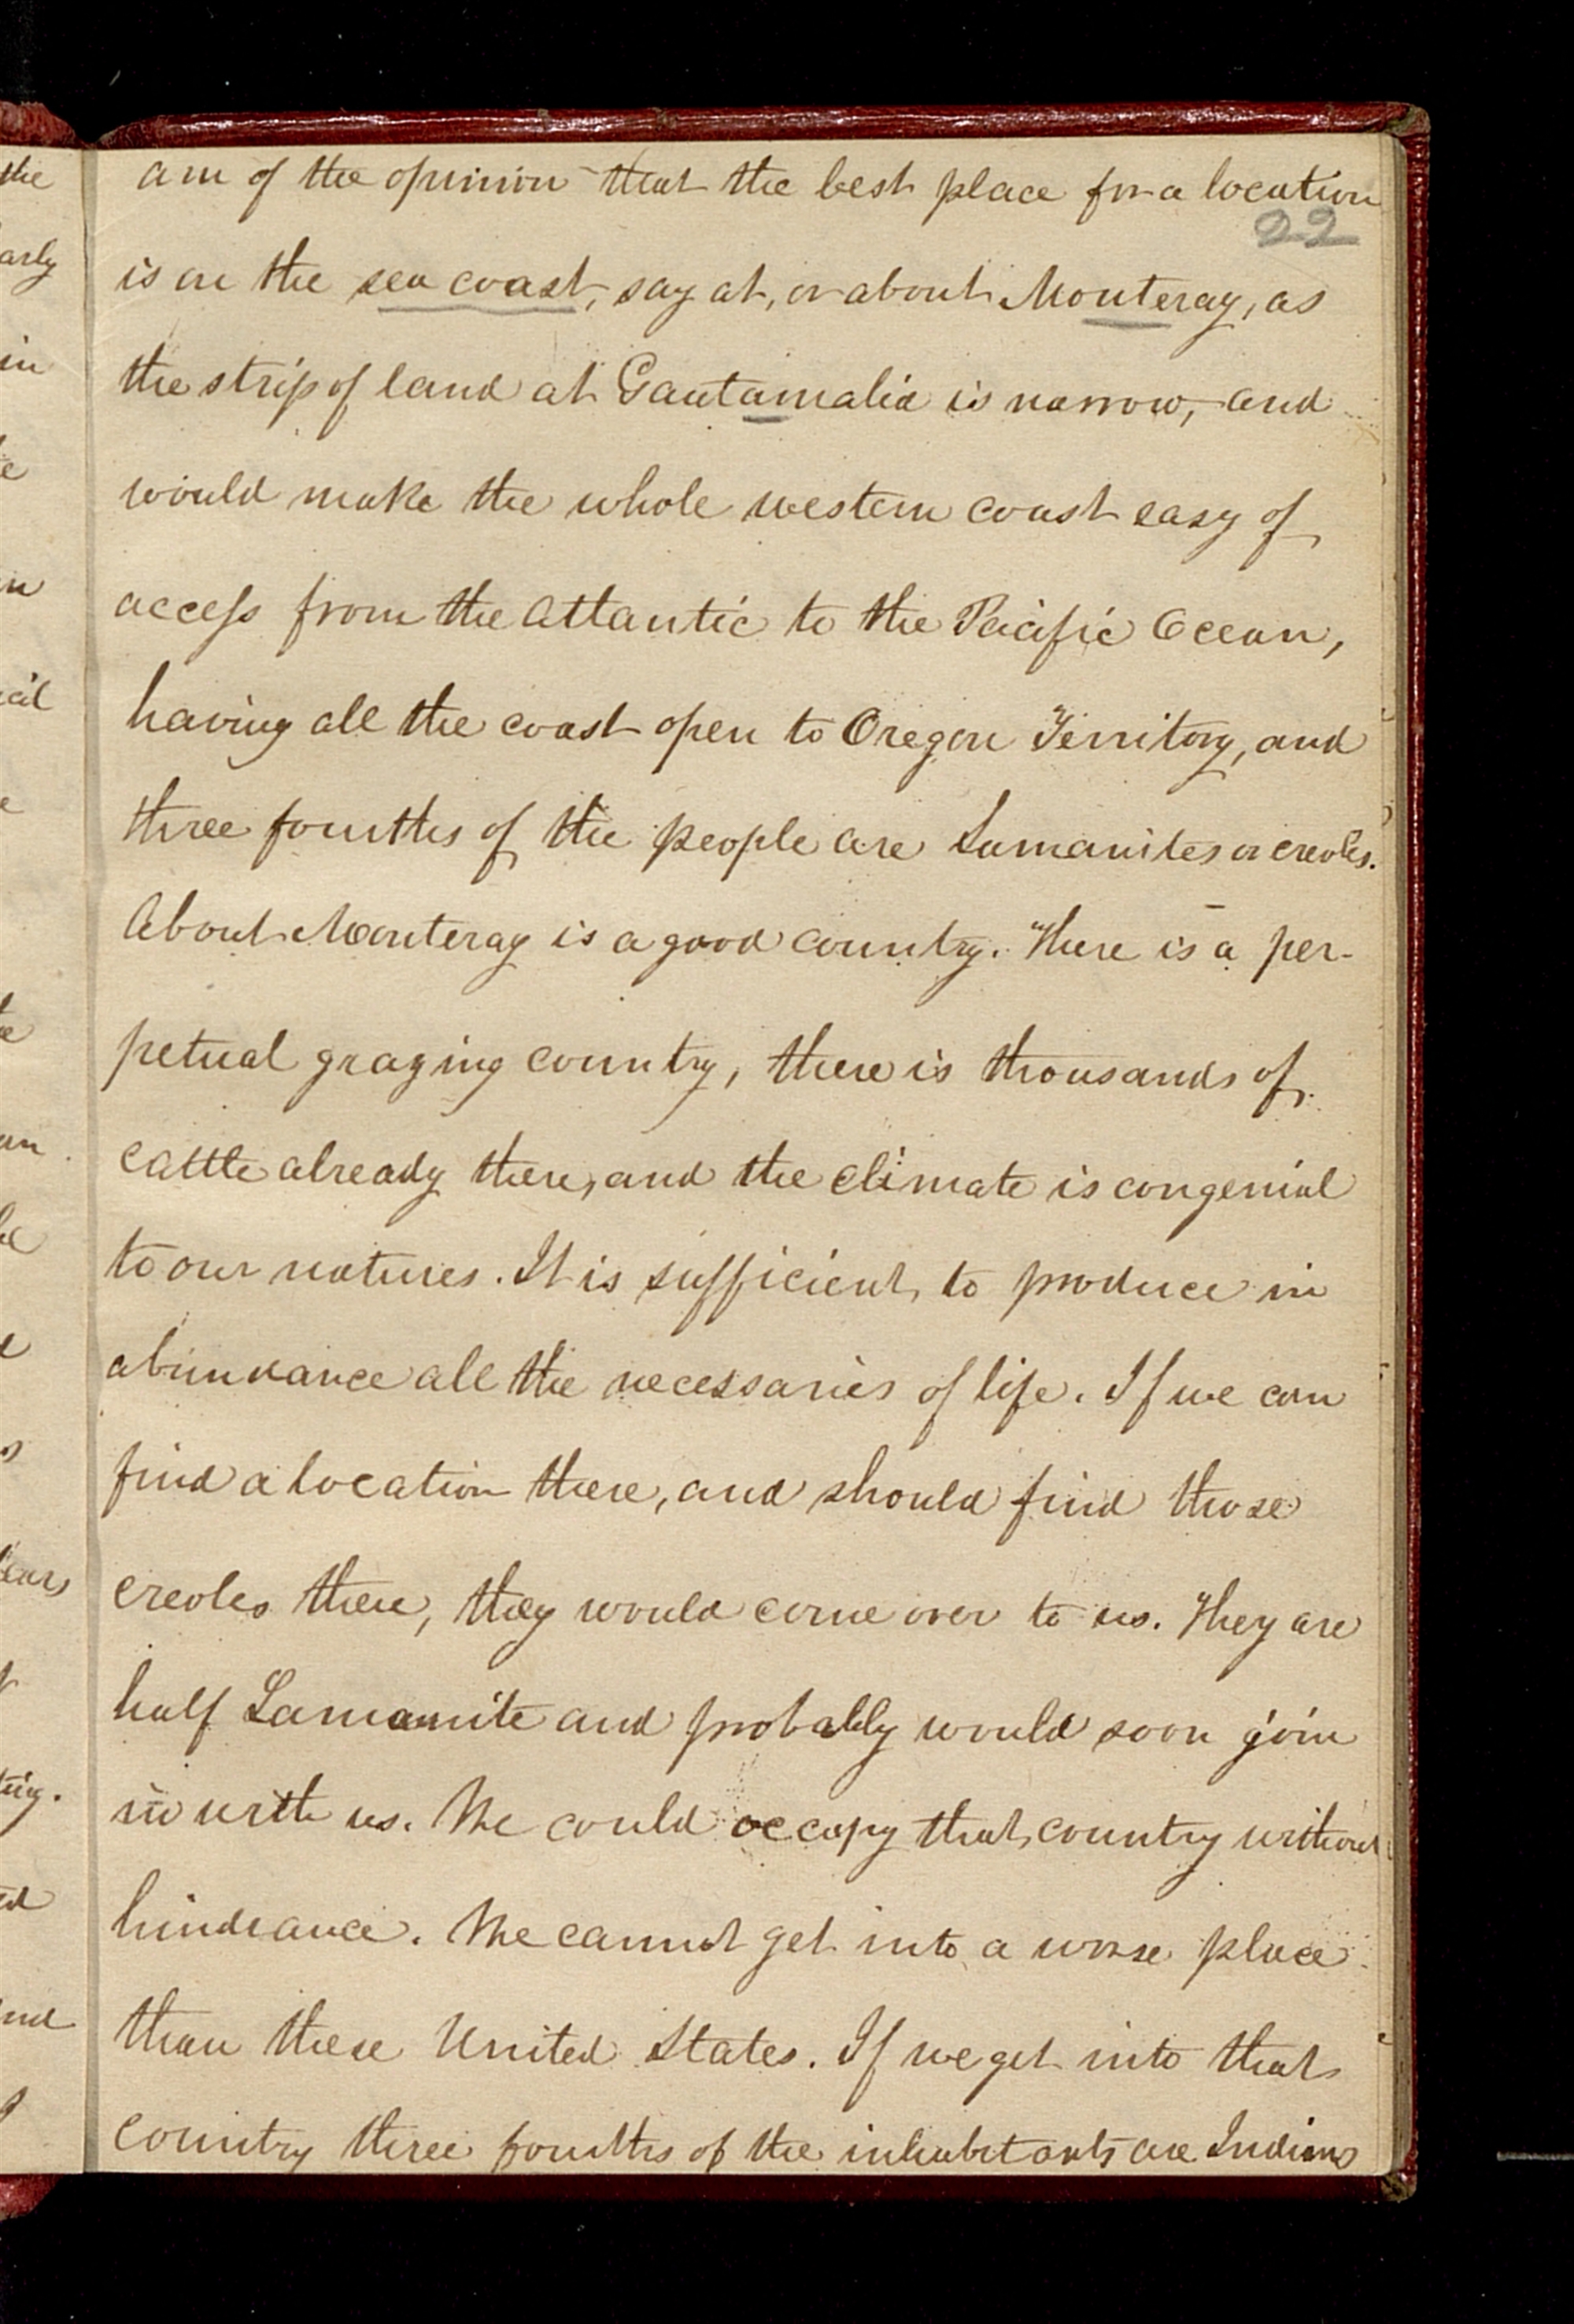 am of the opinion that the best place for a location
22
is on the sea coast, say at, or about Monteray, as
the strip of land at Gautamalia is narrow, and
would make the whole western coast easy of
access from the Atlantic to the Pacific Ocean,
having all the coast open to Oregon Territory, and
three fourths of the people are Lamanites or creoles.
About Monteray is a good country. There is a per-
petual grazing country, there is thousands of
cattle already there, and the climate is congenial
to our natures. It is sufficient to produce in
abundance all the necessaries of life. If we can
find a location there, and should find those
creoles there, they would come over to us. They are
half Lamanite and probably would soon join
in with us. We could occupy that country without
hindrance. We cannot get into a worse place
than these United States. If we get into that
country three fourths of the inhabitants are Indians